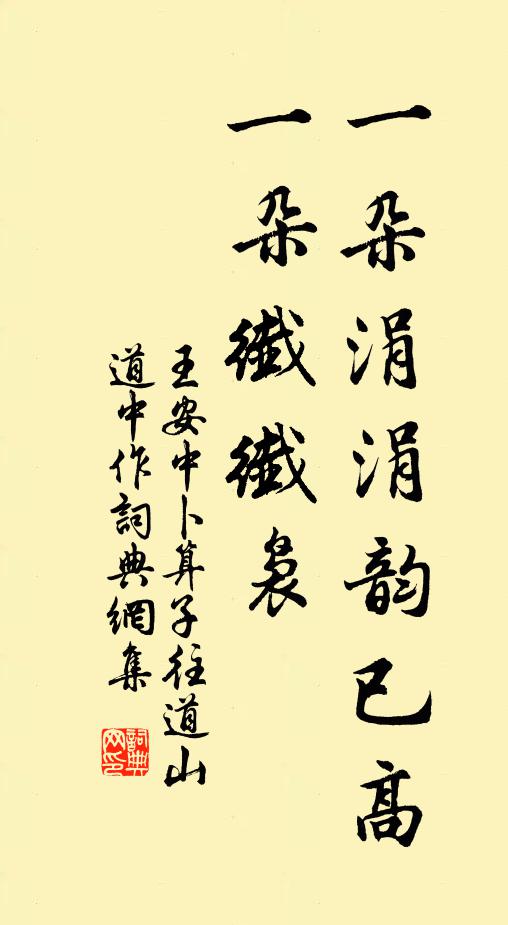 一朶涓涓韵已高
一朶纖纖裊
王安中卜算子往道山
道中作詞典網集
詞典
网印